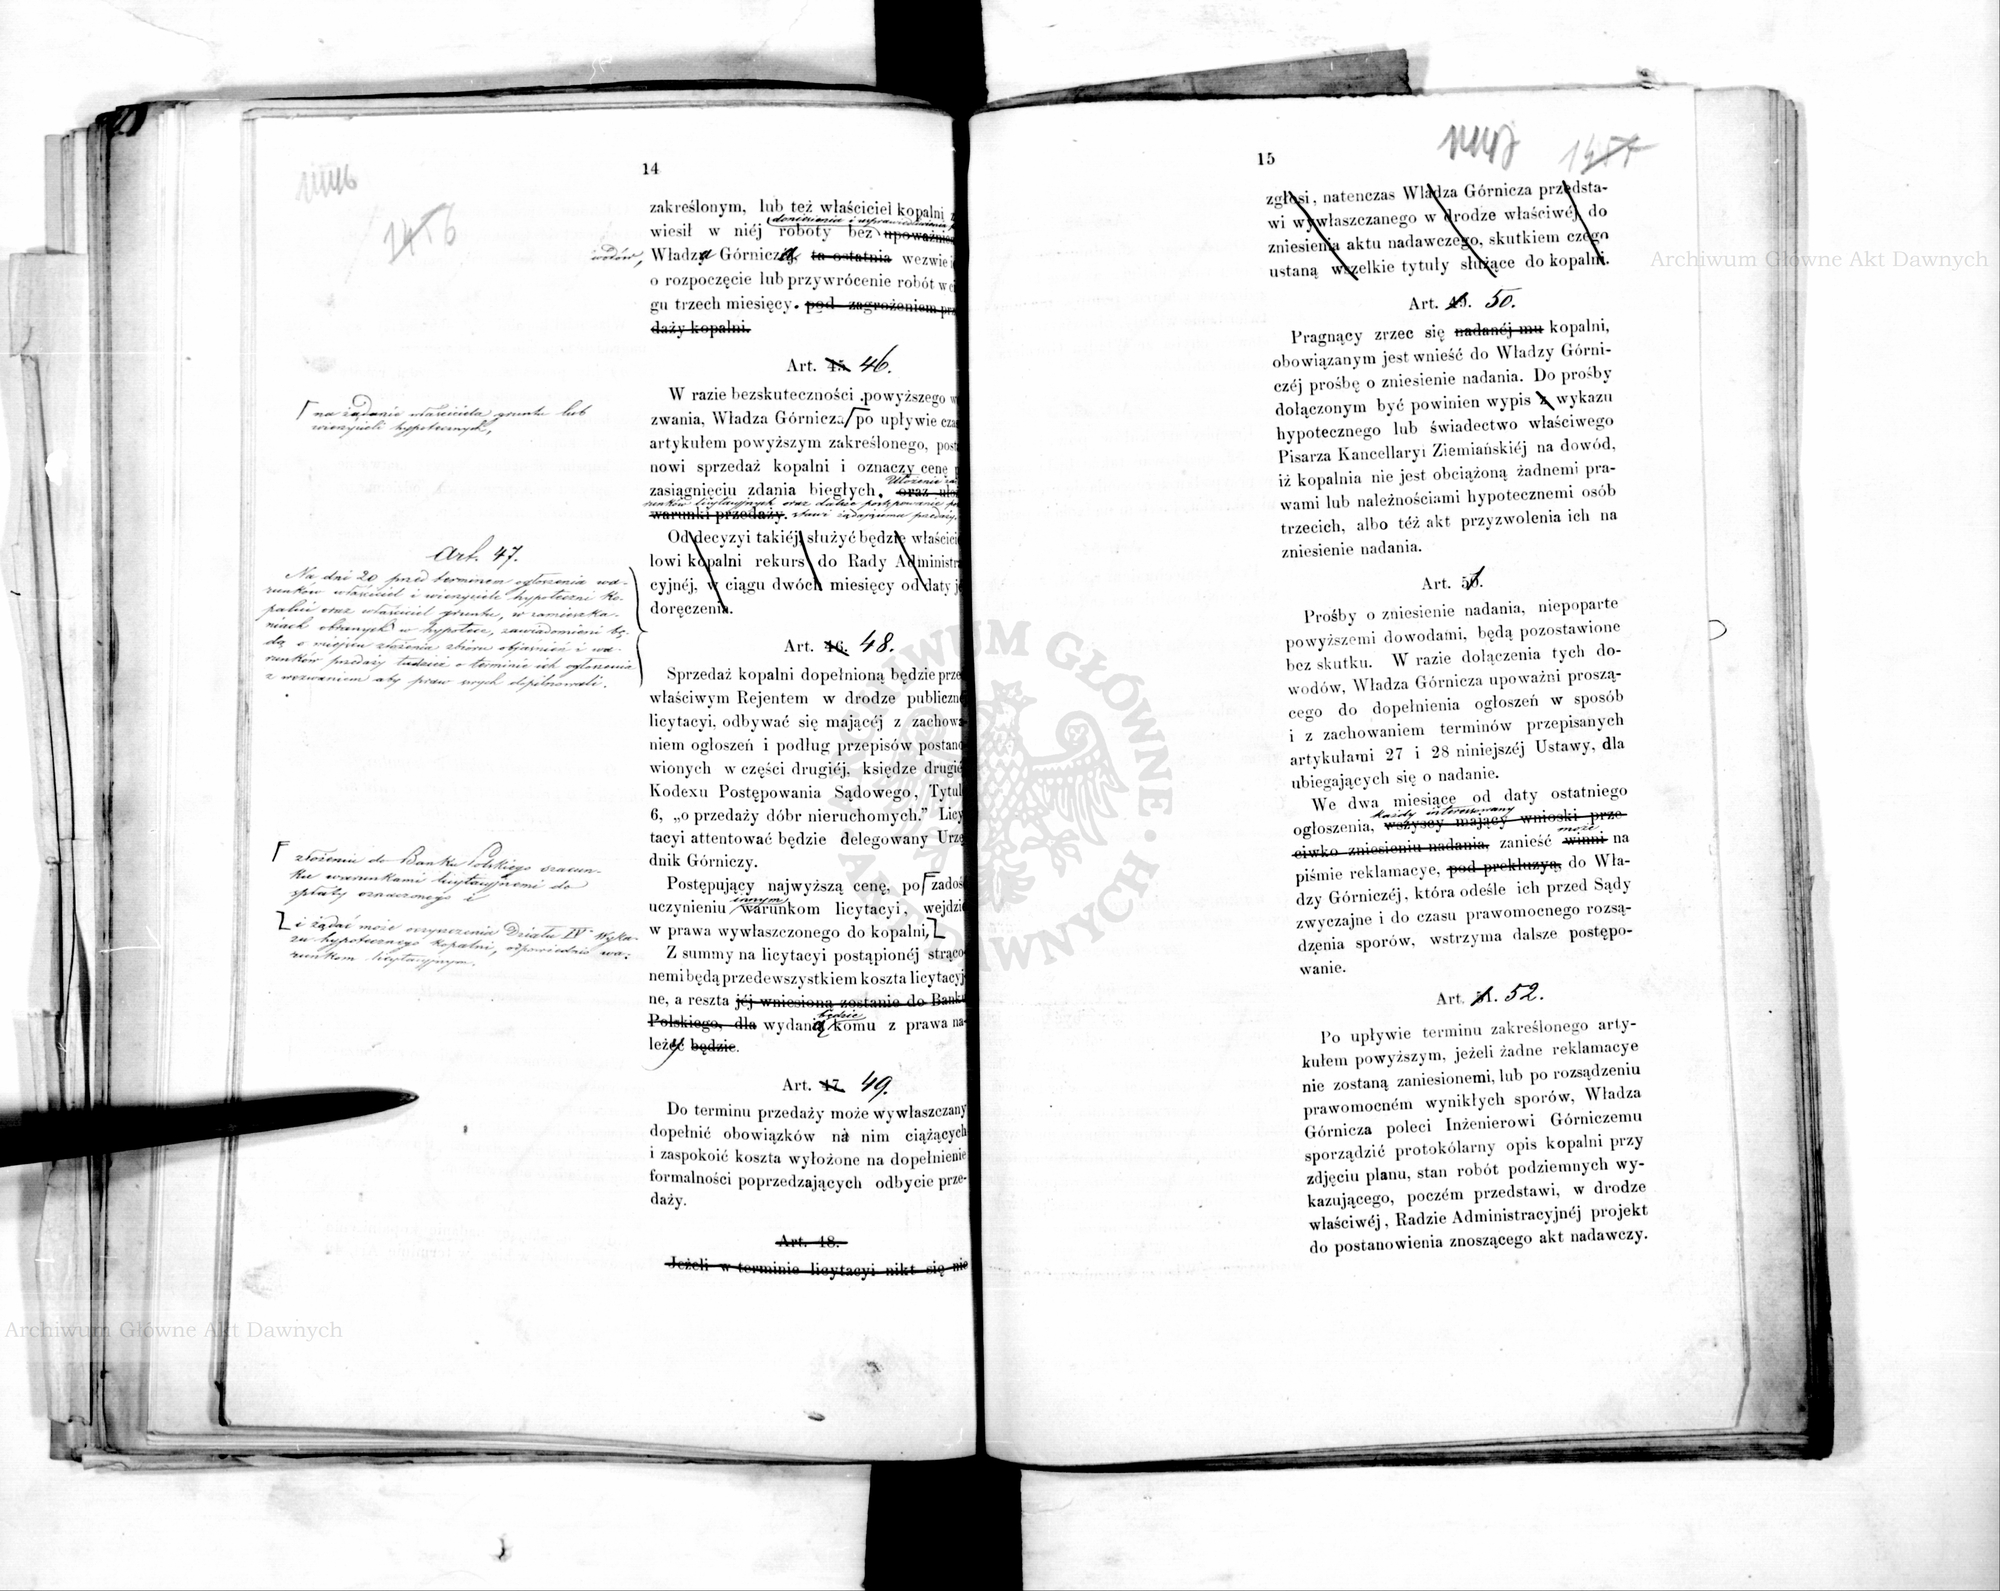 14
zakreślonym, lub też właściciel kopalni
doniesienia i usprawiedliwienia
wiesił w niéj roboty bez
wodów, Władza Górnicza ta ostatnia wezwie
o rozpoczęcie lub przywrócenie robót w
gu trzech miesięcy. pod zagrożeniem
daży kopalni.
Art. 45 46.
W razie bezskuteczności powyższego
zwania, Władza Górnicza po upływie
na żądanie właściciela gruntu lub
wierzycieli hypotecznych,
artykułem powyższym zakreślonego,
nowi sprzedaż kopalni i oznaczy cenę
Ułożenie
zasiągnięciu zdania biegłych. oraz
runków licytacyjnych oraz dalsze postępowanie
warunki przedaży.
Od decyzyi takiéj służyć będzie
lowi kopalni rekurs do Rady
cyjnéj, w ciągu dwóch miesięcy od daty
doręczenia.
Art. 47.
Na dni 20 przed terminem ogłoszenia wa-
runków właściciel i wierzyciele hypoteczni ko-
palni oraz właściciel gruntu, w zamieszka-
niach obranych w hypotece, zawiadomieni bę-
dą o miejscu złożenia zbioru objaśnień i wa-
runków przedaży tudzież o terminie ich ogłoszenia
z wezwaniem aby praw swych dopilnowali.
Art. 46. 48.
Sprzedaż kopalni dopełnioną będzie
właściwym Rejentem w drodze
licytacyi, odbywać się mającéj z
niem ogłoszeń i podług przepisów
wionych w części drugiéj, księdze
Kodexu Postępowania Sądowego,
6, „o przedaży dóbr nieruchomych.”
tacyi attentować będzie delegowany
dnik Górniczy.
Postępujący najwyższą cenę, po
złożeniu do Banku Polskiego szacun-
ku warunkami licytacyjnemi do
spłaty oznaczonego i
innym
uczynieniu warunkom licytacyi, wejdzie
w prawa wywłaszczonego do kopalni,
i żądać może oczyszczenia Działu IV Wyka-
zu hypotecznego kopalni, odpowiednio wa-
runkom licytacyjnym.
Z summy na licytacyi postąpionéj strąco-
nemi będą przedewszystkiem koszta licytacyj-
ne, a reszta jéj wniesioną zostanie do Banku
będzie
Polskiego, dla wydaną komu z prawa na-
leży będzie.
Art. 47. 49.
Do terminu przedaży może wywłaszczany
dopełnić obowiązków na nim ciążących
i zaspokoić koszta wyłożone na dopełnienie
formalności poprzedzających odbycie prze-
daży.
Art. 48.
Jeżeli w terminie licytacyi nikt się nie
15
zgłosi, natenczas Władza Górnicza przedsta-
wi wywłaszczanego w drodze właściwéj do
zniesienia aktu nadawczego, skutkiem czego
ustaną wszelkie tytuły służące do kopalni.
Art. 49. 50.
Pragnący zrzec się nadanéj mu kopalni,
obowiązanym jest wnieść do Władzy Górni-
czéj prośbę o zniesienie nadania. Do prośby
dołączonym być powinien wypis z wykazu
hypotecznego lub świadectwo właściwego
Pisarza Kancellaryi Ziemiańskiéj na dowód,
iż kopalnia nie jest obciążoną żadnemi pra-
wami lub należnościami hypotecznemi osób
trzecich, albo téż akt przyzwolenia ich na
zniesienie nadania.
Art. 51.
Prośby o zniesienie nadania, niepoparte
powyższemi dowodami, będą pozostawione
bez skutku. W razie dołączenia tych do-
wodów, Władza Górnicza upoważni proszą-
cego do dopełnienia ogłoszeń w sposób
i z zachowaniem terminów przepisanych
artykułami 27 i 28 niniejszéj Ustawy, dla
ubiegających się o nadanie.
We dwa miesiące od daty ostatniego
każdy interesowany
ogłoszenia, wszyscy mający wnioski prze-
może
ciwko zniesieniu nadania, zanieść winni na
piśmie reklamacye, pod prekluzyą, do Wła-
dzy Górniczéj, która odeśle ich przed Sądy
zwyczajne i do czasu prawomocnego rozsą-
dzenia sporów, wstrzyma dalsze postępo-
wanie.
Art. 51. 52.
Po upływie terminu zakreślonego arty-
kułem powyższym, jeżeli żadne reklamacye
nie zostaną zaniesionemi, lub po rozsądzeniu
prawomocném wynikłych sporów, Władza
Górnicza poleci Inżenierowi Górniczemu
sporządzić protokólarny opis kopalni przy
zdjęciu planu, stan robót podziemnych wy-
kazującego, poczém przedstawi, w drodze
właściwéj, Radzie Administracyjnéj projekt
do postanowienia znoszącego akt nadawczy.
Archiwum Główne Akt Dawnych
Archiwum Główne Akt Dawnych
ARCHIWUM GŁÓWNE AKT DAWNYCH